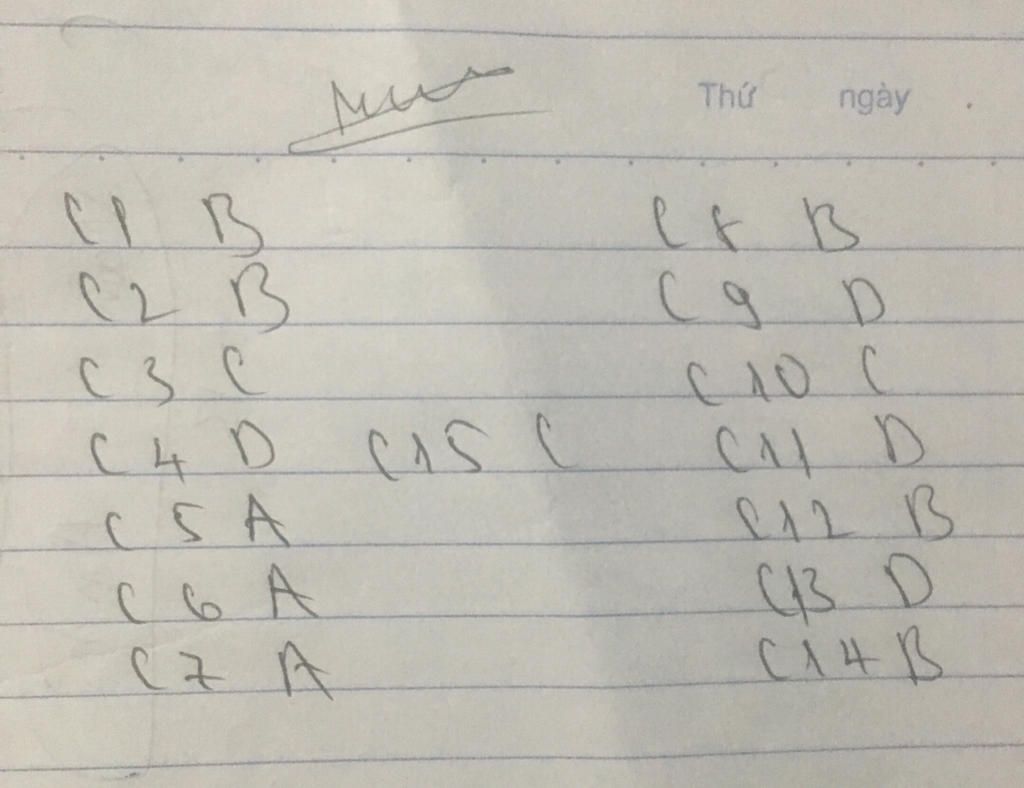 Thứ ngày
C1 B C8 B
C2 B C9 D
C3 C C10 C
C4 D C15 C C11 D
C5 A C12 B
C6 A C13 D
C7 A C14 B